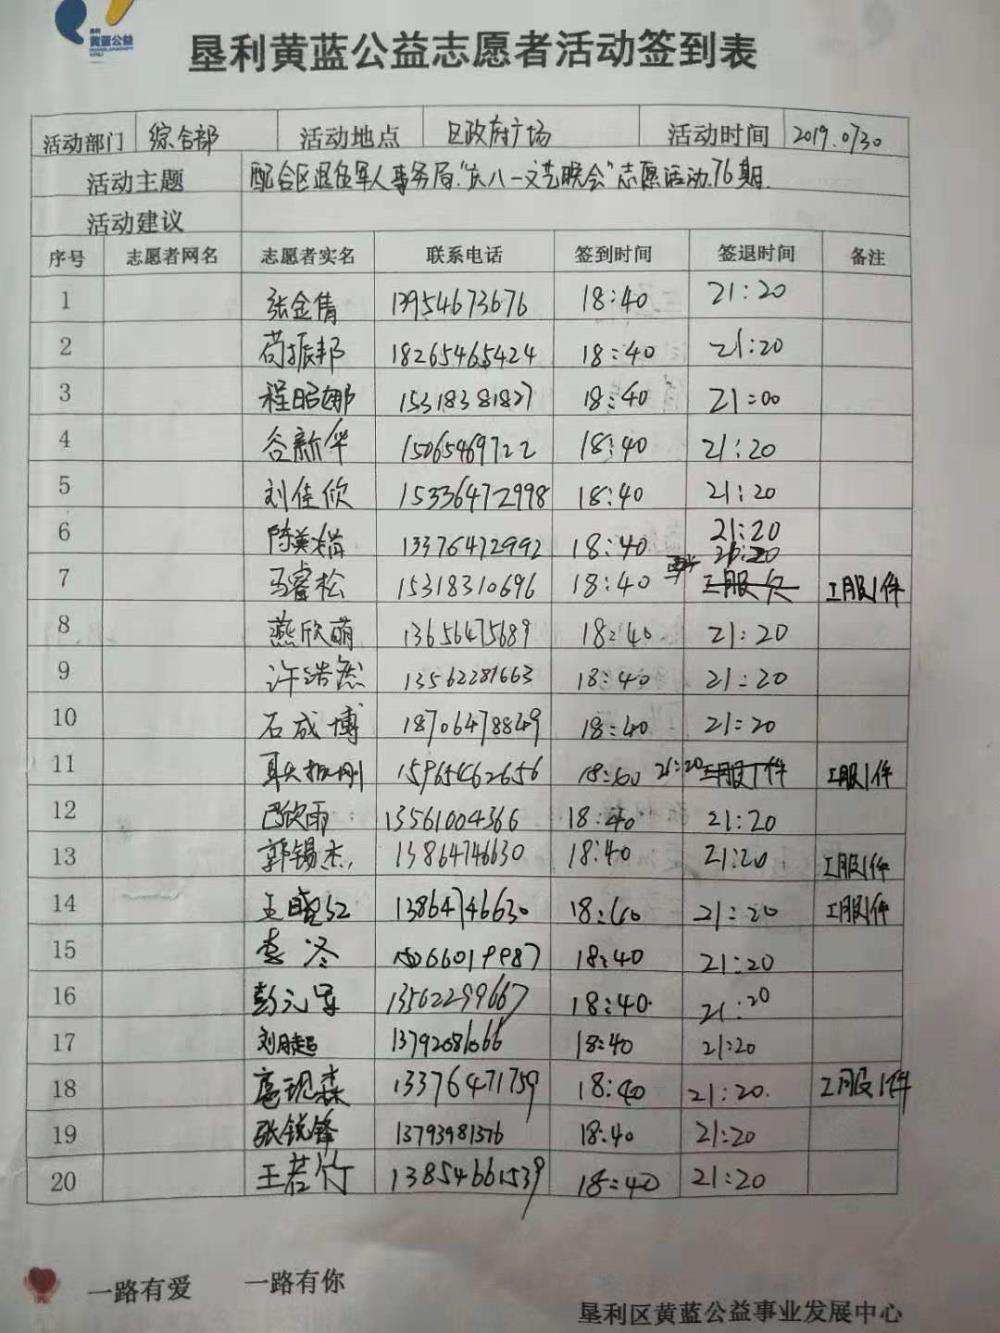 黄蓝公益
垦利黄蓝公益志愿者活动签到表
活动部门 综合部 活动地点 区政府广场 活动时间 2019.0730
活动主题 配合区退伍军人事务局"庆八一文艺晚会"志愿活动.76期.
活动建议
序号 志愿者网名 志愿者实名 联系电话 签到时间 签退时间 备注
1 张金倩 13954673676 18:40 21:20
2 苟振邦 18265465424 18:40 21:20
3 程昭娜 15318381827 18:40 21:00
4 谷新华 15065469722 18:40 21:20
5 刘佳欣 15336472998 18:40 21:20
6 陈美娟 13376472992 18:40 21:20
7 马睿松 15318310696 18:40 21:20 工服1件
8 燕欣萌 13656475689 18:40 21:20
9 许浩然 13562281663 18:40 21:20
10 石成博 18706478849 18:40 21:20
11 15965462656 18:40 21:20 工服1件
12 巴欣雨 13561004366 18:40 21:20
13 郭锡杰 13864746630 18:40 21:20 工服1件
14 王晓红 13864746630 18:40 21:20 工服1件
15 李冬 15066019987 18:40 21:20
16 彭元军 13562299667 18:40 21:20
17 刘晓超 13792081066 18:40 21:20
18 扈现森 13376471759 18:40 21:20 工服1件
19 张锐锋 13793981376 18:40 21:20
20 王若竹 13854661539 18:40 21:20
一路有爱 一路有你
垦利区黄蓝公益事业发展中心